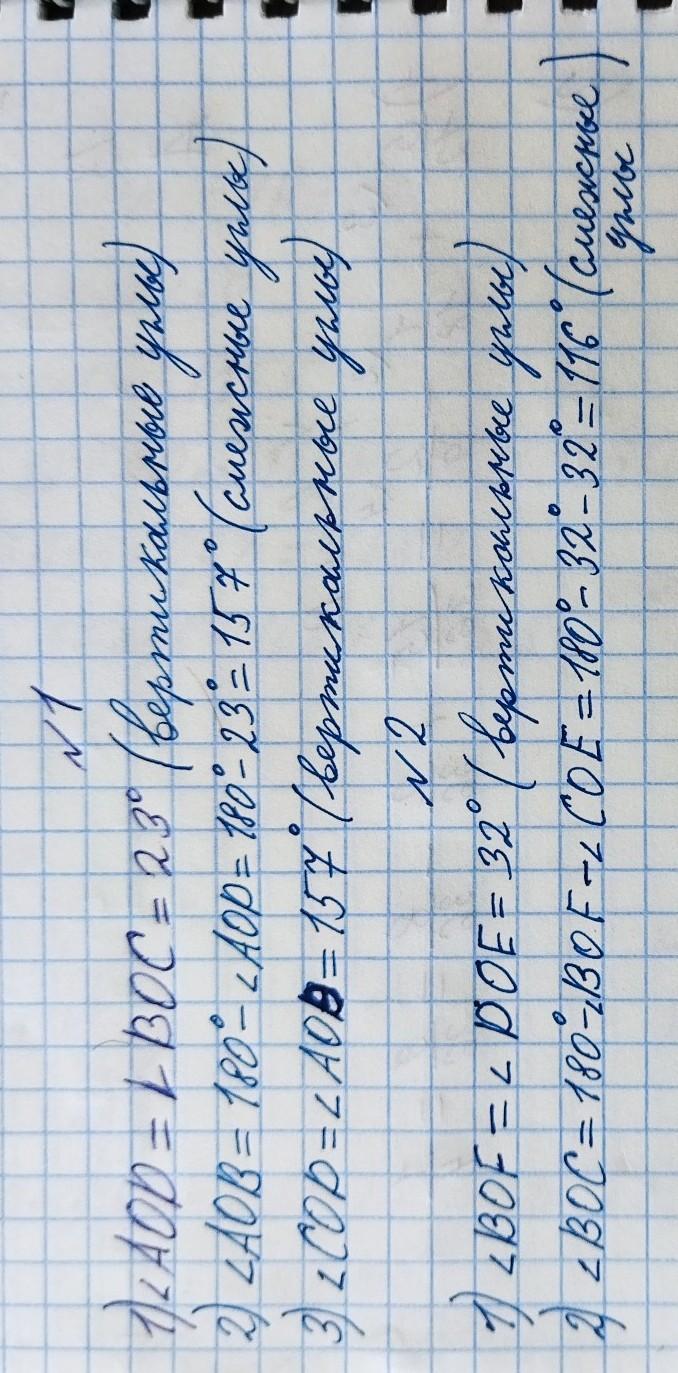 №1
1) ∠AOD = ∠BOC = 23° (вертикальные углы)
2) ∠AOB = 180° - ∠AOD = 180° - 23° = 157° (смежные углы)
3) ∠COD = ∠AOB = 157° (вертикальные углы)
№2
1) ∠BOF = ∠DOE = 32° (вертикальные углы)
2) ∠BOC = 180° - ∠BOF - ∠COE = 180° - 32° - 32° = 116° (смежные
углы)